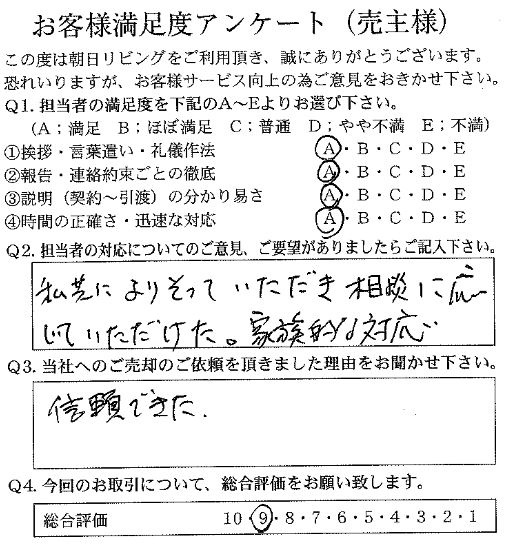 お客様満足度アンケート（売主様）
この度は朝日リビングをご利用頂き、誠にありがとうございます。
恐れいりますが、お客様サービス向上の為ご意見をおきかせ下さい。
Q1. 担当者の満足度を下記のA～Eよりお選び下さい。
（A；満足　B；ほぼ満足　C；普通　D；やや不満　E；不満）
①挨拶・言葉遣い・礼儀作法　A・B・C・D・E
②報告・連絡約束ごとの徹底　A・B・C・D・E
③説明（契約～引渡）の分かり易さ　A・B・C・D・E
④時間の正確さ・迅速な対応　A・B・C・D・E
Q2. 担当者の対応についてのご意見、ご要望がありましたらご記入下さい。
私共によりそっていただき相談に応
じていただけた。家族的な対応
Q3. 当社へのご売却のご依頼を頂きました理由をお聞かせ下さい。
信頼できた.
Q4. 今回のお取引について、総合評価をお願い致します。
総合評価　10・9・8・7・6・5・4・3・2・1